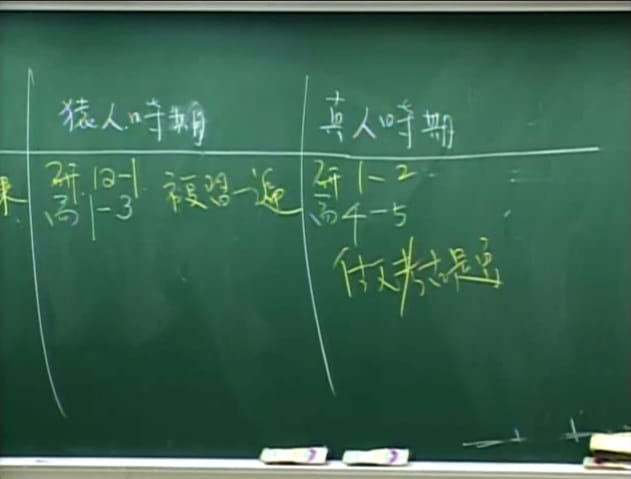 猿人時期
真人時期
果
研12-1
高1-3
複習一遍
研1-2
高4-5
做考古題